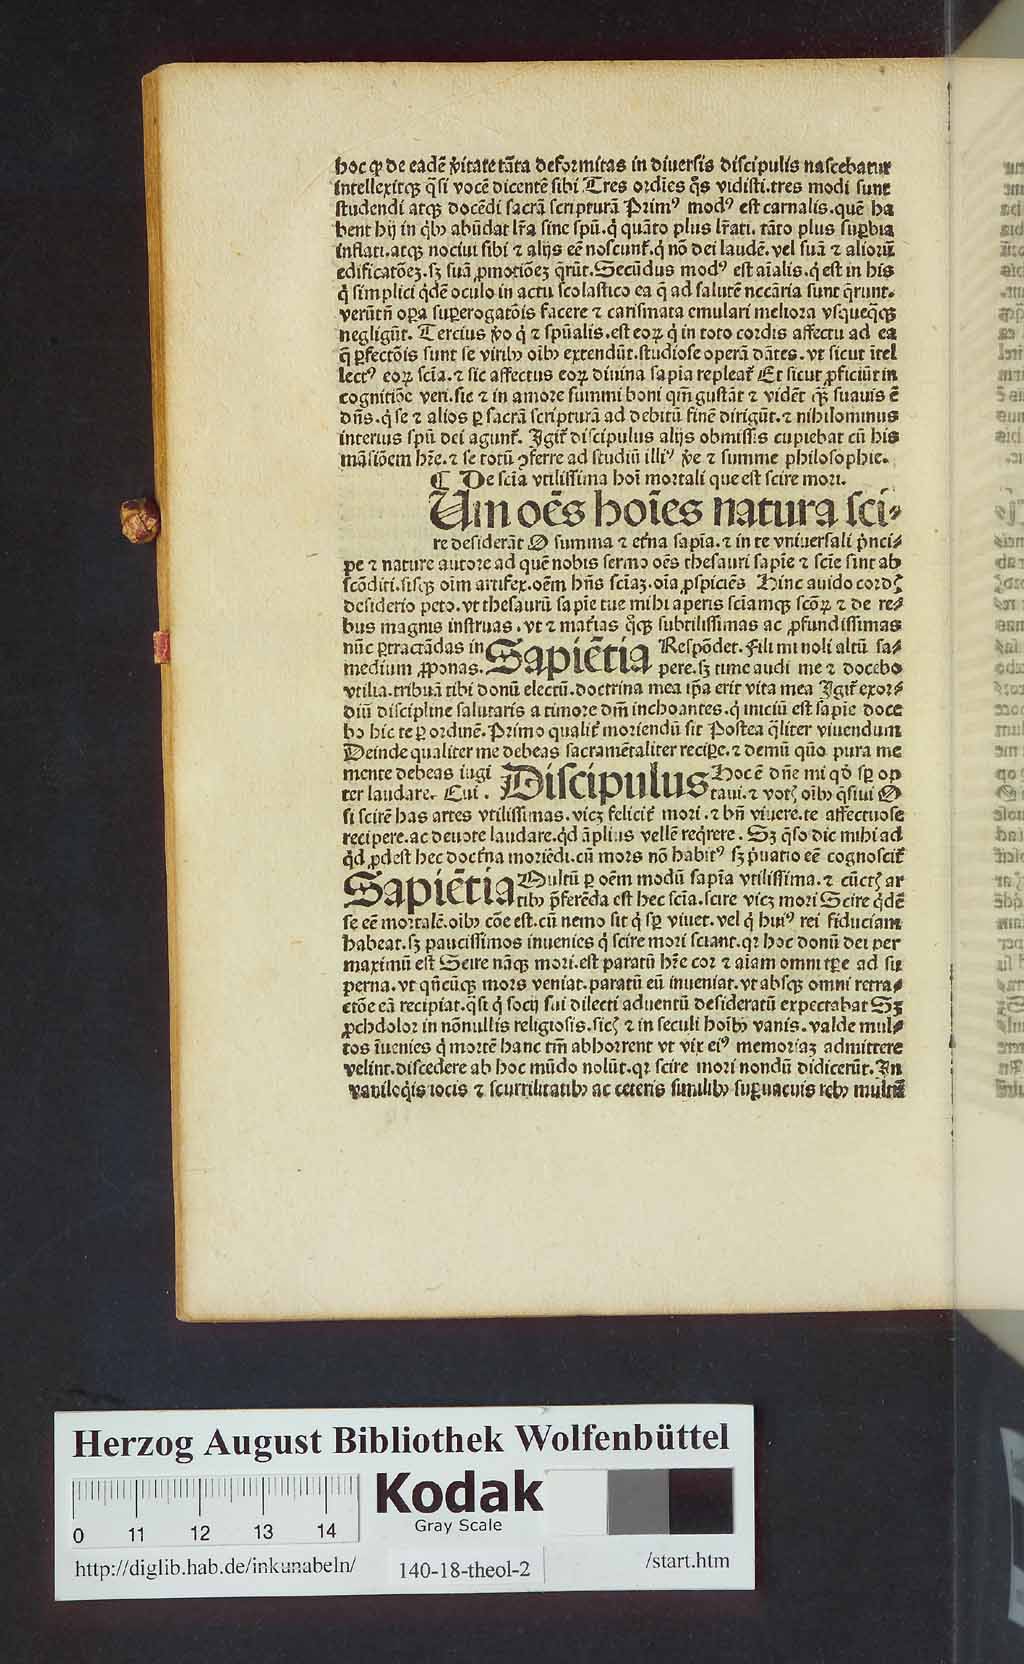 hoc ꝙ de eadē v̾itate tāta deformitas in diuersis discipulis nascebatur
intellexitqꝫ q̄si vocē dicentē sibi Tres ordīes qͦs vidisti.tres modi sunt
studendi atqꝫ docēdi sacrā scripturā Primꝰ modꝰ est carnalis.quē ha
bent hij in qͥbꝫ abūdat lr̄a sine spū.qͥ quāto plus lr̄ati. tāto plus suꝑbia
inflati.atqꝫ nociui sibi ⁊ alijs eē noscunt᷑.qͥ nō dei laudē. vel suā ⁊ aliorū
edificatōeꝫ.sꝫ suā ꝓmotiōeꝫ q̄rūt.Secūdus modꝰ est aīalis.qͥ est in his
qͥ simplici qͥdē oculo in actu scolastico ea q̄ ad salutē nccāria sunt q̄runt.
verūtn̄ oꝑa suꝑerogatōis facere ⁊ carismata emulari meliora vsquequꝫ
negligūt. Tercius v̾o qͥ ⁊ spūalis.est eoꝝ qͥ in toto cordis affectu ad ea
q̄ ꝑfectōis sunt se viribꝫ oībꝫ extendūt.studiose operā dātes.vt sicut ītel
lectꝰ eoꝝ scīa.⁊ sic affectus eoꝝ diuina sapīa repleat᷑ Et sicut ꝓficiūt in
cognitiōe veri.sic ⁊ in amore summi boni qm̄ gustāt ⁊ vidēt qꝫ suauis ē
dn̄s.qͥ se ⁊ alios ꝑ sacrā scripturā ad debitū finē dirigūt.⁊ nihilominus
interius spū dei agunt᷑. Igit᷑ discipulus alijs obmissis cupiebat cū his
māsiōem hr̄e.⁊ se totū ꝯferre ad studiū illiꝰ v̾e ⁊ summe philosophie.
¶ De scīa vtilissima hoī mortali que est scire mori.
Um oēs hoīes natura sci⸗
re desiderāt O summa ⁊ et̾na sapīa.⁊ in te vniuersali pͥnci⸗
pe ⁊ nature autore ad quē nobis sermo oēs thesauri sapīe ⁊ scīe sint ab
scōditi.sisqꝫ oīm artifex.oēm hn̄s scīaꝫ.oīa ꝑspiciēs Hinc auido cordꝭ
desiderio peto.vt thesaurū sapīe tue mihi aperis scīamqꝫ scōꝝ ⁊ de re⸗
bus magnis instruas.vt ⁊ mat᷑ias qͣsqꝫ subtilissimas ac ꝓfundissimas
nūc ꝑtractādas in Sapiētia Respōdet.Fili mi noli altū sa⸗
medium ꝓponas. pere.sꝫ time audi me ⁊ docebo
vtilia.tribuā tibi donū electū.doctrina mea ip̄a erit vita mea Igit᷑ exor⸗
diū discipline salutaris a timore dn̄i inchoantes.qͥ iniciū est sapīe doce
bo hic te ꝑ ordinē.Primo qualit᷑ moriendū sit Postea qͣliter viuendum
Deinde qualiter me debeas sacramētaliter recipe.⁊ demū qūo pura me
mente debeas iugi Discipulus Hoc ē dn̄e mi qd̓ sꝑ op
ter laudare. Cui . taui.⁊ votꝭ oībꝫ q̄siui O
si scirē has artes vtilissimas.vicꝫ felicit᷑ mori.⁊ bn̄ viuere.te affectuose
recipere.ac deuote laudare.qͥd āplius vellē req̄rere. Sꝫ q̄so dic mihi ad
qͥd ꝓdest hec doct͛na moriēdi.cū mors nō habitꝰ sꝫ pͥuatio eē cognoscit᷑
Sapiētia Multū ꝑ oēm modū sapīa vtilissima.⁊ cūctꝭ ar
tibꝫ p̄ferēda est hec scīa.scire vicꝫ mori Scire qͥdē
se eē mortalē.oībꝫ cōe est.cū nemo sit qͥ sꝑ viuet.vel qͥ huiꝰ rei fiduciam
habeat.sꝫ paucissimos inuenies qͥ scire mori sciant.qꝛ hoc donū dei per
maximū est Scire nāqꝫ mori.est paratū hr̄e cor ⁊ aīam omni tꝑe ad su
perna.vt qn̄cūqꝫ mors veniat.paratū eū inueniat.vt absqꝫ omni retra⸗
ctōe eā recipiat.qͣsi qͥ socij sui dilecti aduentū desideratū expectabat Sꝫ
ꝓchdolor in nōnullis religiosis.sicꝭ ⁊ in seculi hoībꝫ vanis.valde mul⸗
tos īuenies qͥ mortē hanc tm̄ abhorrent vt vix eiꝰ memoriaꝫ admittere
velint.discedere ab hoc mūdo nolūt.qꝛ scire mori nondū didicerūt.In
vaniloqͥis iocis ⁊ scurrilitatibꝫ ac ceteris similibꝫ suꝑuacuis rebꝫ multū
Herzog August Bibliothek Wolfenbüttel
Kodak
Gray Scale
0 11 12 13 14
http://diglib.hab.de/inkunabeln/ 140-18-theol-2 /start.htm